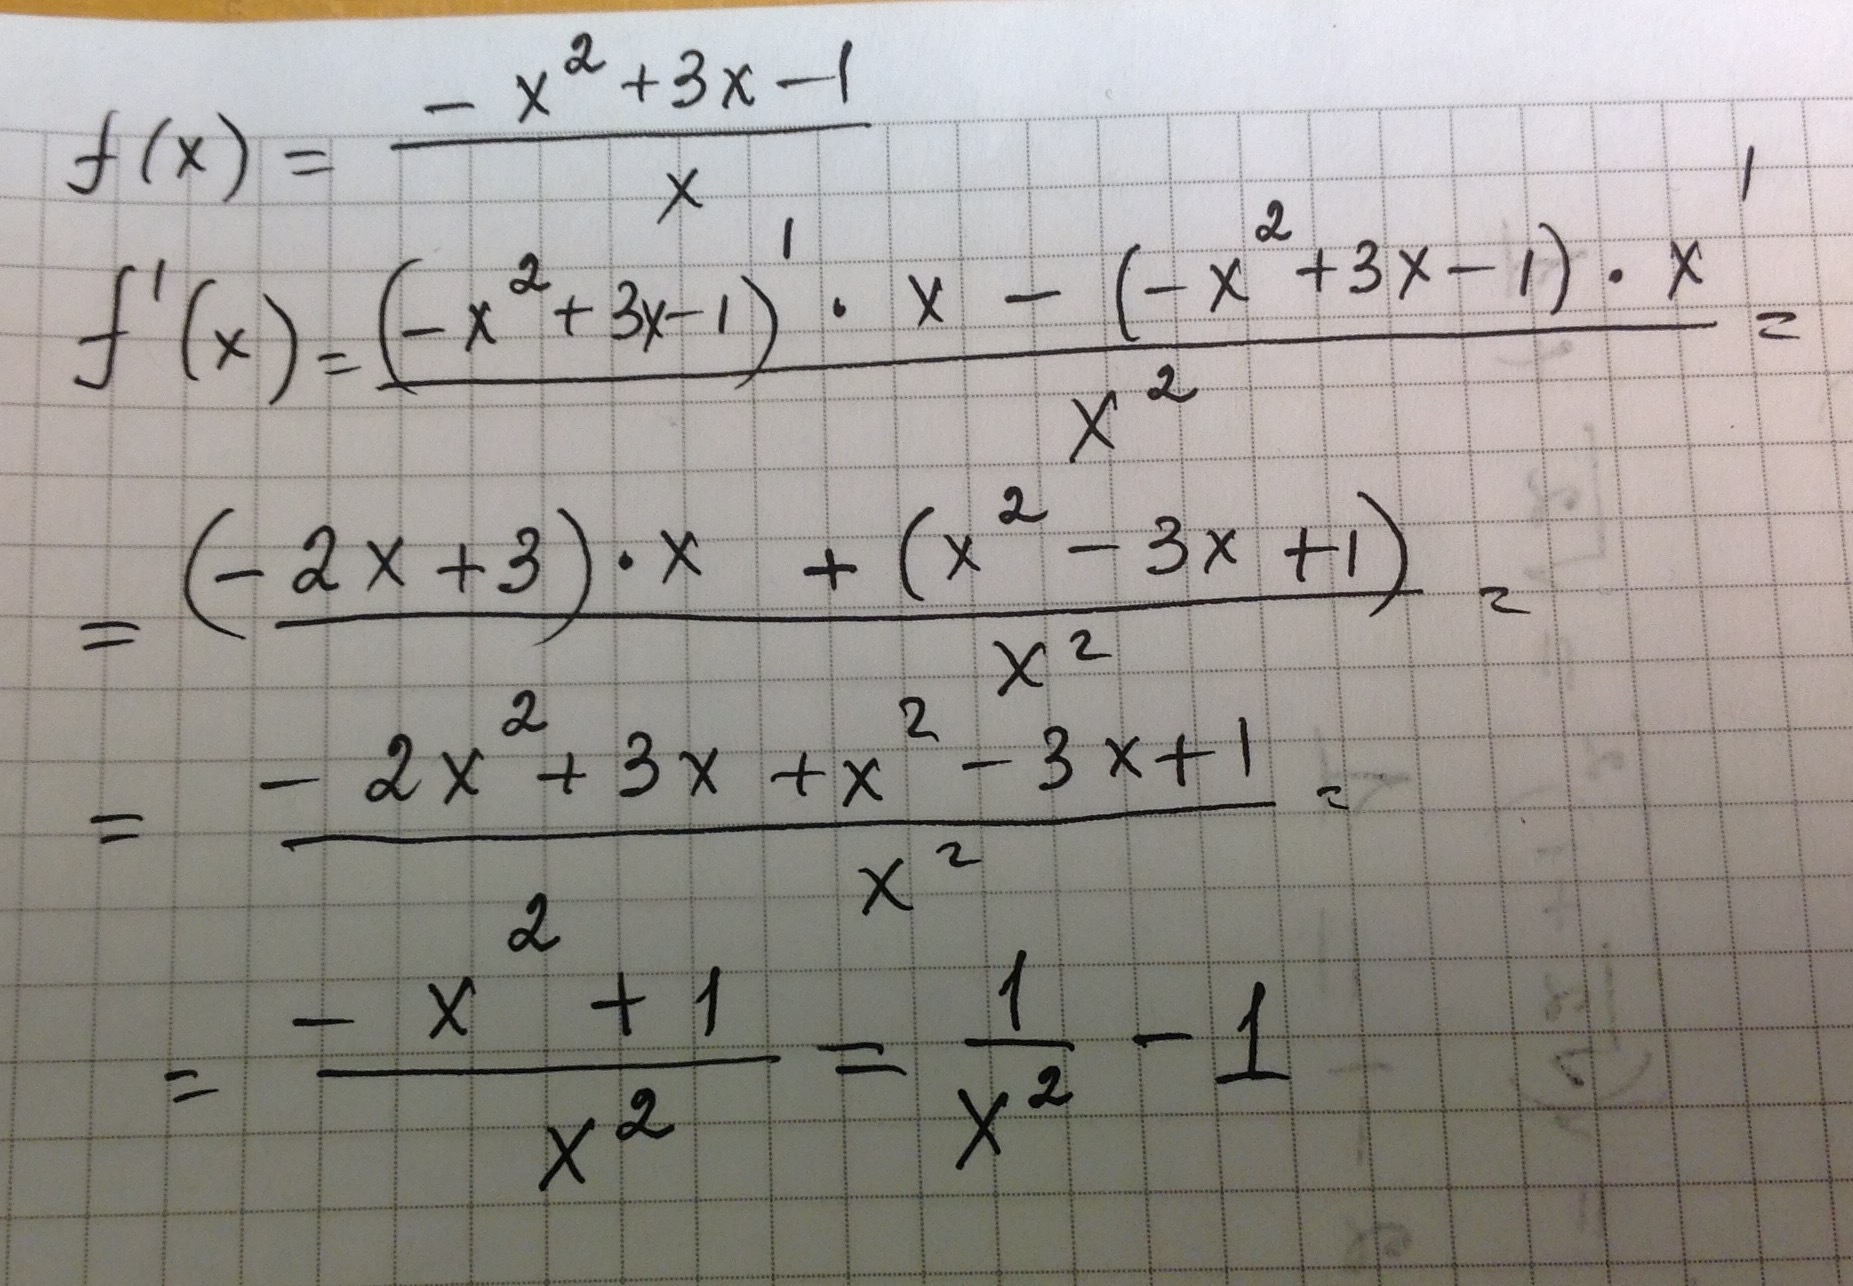 f(x) = (-x² + 3x - 1) / x
f'(x) = ((-x² + 3x - 1)' · x - (-x² + 3x - 1) · x') / x² =
= ((-2x + 3) · x + (x² - 3x + 1)) / x² =
= (-2x² + 3x + x² - 3x + 1) / x² =
= (-x² + 1) / x² = 1 / x² - 1